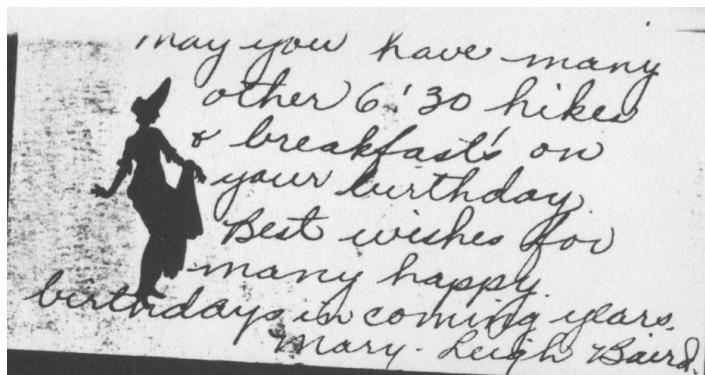 May you have many
other 6:30 hikes
& breakfast's on
your birthday.
Best wishes for
many happy
birthdays in coming years.
Mary-Leigh Baird.